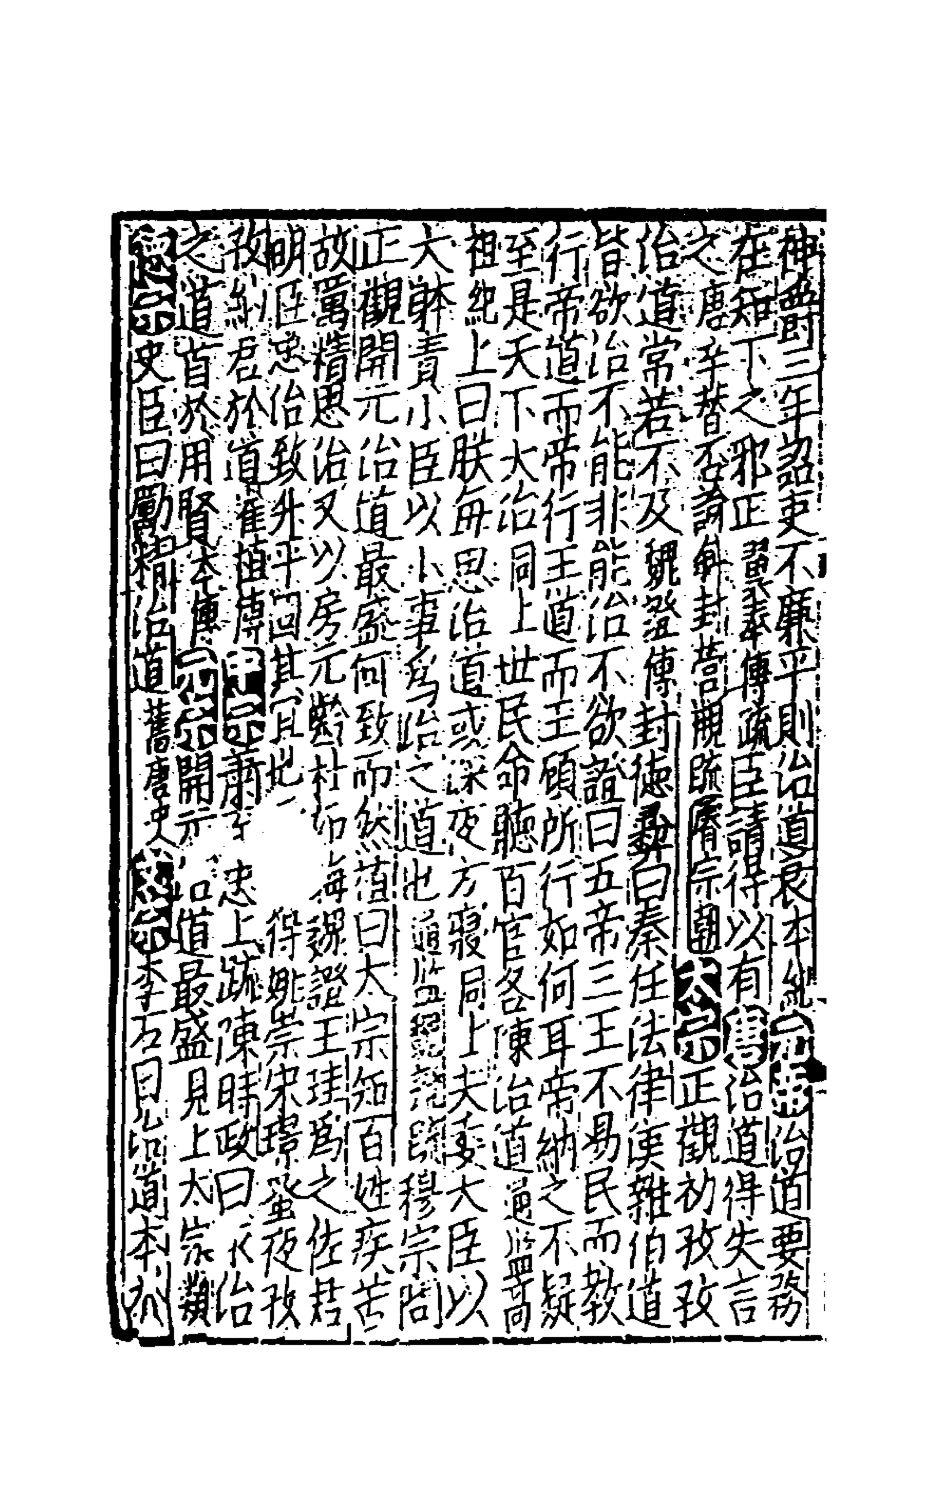 神爵三年詔吏不廉平則治道衰本紀元帝治道要務
在知下之邪正翼奉傳疏臣請得以有唐治道得失言
之唐辛替否諭斜封營觀疏睿宗朝太宗正觀初孜孜
治道常若不及魏澄傳封德彝曰秦任法律漢雜伯道
皆欲治不能非能治不欲證曰五帝三王不易民而教
行帝道而帝行王道而王顧所行如何耳帝納之不疑
至是天下大治同上世民命聽百官各陳治道通監高
祖紀上曰朕每思治道或深夜方寢同上夫委大臣以
大躰責小臣以小事為治之道也通監魏證疏穆宗問
正觀開元治道最盛何致而然植曰大宗知百姓疾苦
故厲精思治又以房元齡杜如海魏證王珪為之佐君
明臣忠治致升平固其宜也 得姚崇宋璟蚤夜孜
孜納君於道崔植傳中宗蕭至忠上疏陳時政曰求治
之道首於用賢本傳元宗開元治道最盛見上太宗類
憲宗史臣曰勵精治道舊唐史 李石曰治道本於